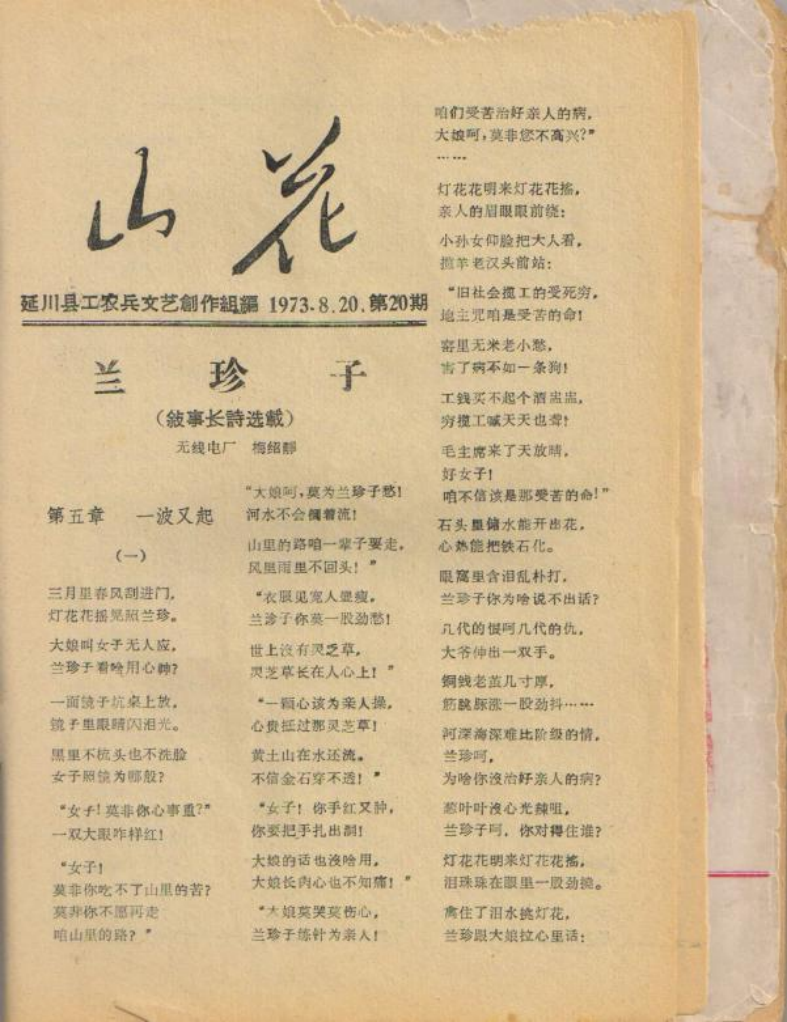 山花
延川县工农兵文艺創作組編 1973.8.20.第20期
兰珍子
（敍事长詩选載）
无线电厂 梅紹靜
第五章 一波又起
（一）
三月里春风刮进门，
灯花花摇晃照兰珍。
大娘叫女子无人应，
兰珍子看啥用心神？
一面镜子炕桌上放，
镜子里眼睛闪泪光。
黑里不梳头也不洗脸
女子照镜为哪般？
“女子！莫非你心事重？”
一双大眼咋样红！
“女子！
莫非你吃不了山里的苦？
莫非你不愿再走
咱山里的路？”
“大娘呵，莫为兰珍子愁！
河水不会倒着流！
山里的路咱一辈子要走，
风里雨里不回头！”
“衣服见宽人显瘦，
兰珍子你莫一股劲愁！
世上沒有灵芝草，
灵芝草长在人心上！”
“一颗心该为亲人操，
心贵抵过那灵芝草！
黄土山在水还流。
不信金石穿不透！”
“女子！你手红又肿，
你要把手扎出洞！
大娘的话也沒啥用，
大娘长肉心也不知痛！”
“大娘莫哭莫伤心，
兰珍子练针为亲人！
咱们受苦治好亲人的病，
大娘呵，莫非您不高兴？”
……
灯花花明来灯花花搖，
亲人的眉眼眼前绕：
小孙女仰脸把大人看，
揽羊老汉头前站：
“旧社会揽工的受死穷，
地主咒咱是受苦的命！
窑里无米老小愁，
害了病不如一条狗！
工钱买不起个酒盅盅，
穷揽工喊天天也聋！
毛主席来了天放晴，
好女子！
咱不信该是那受苦的命！”
石头里储水能开出花，
心热能把铁石化。
眼窝里含泪乱朴打，
兰珍子你为啥说不出话？
几代的恨呵几代的仇，
大爷伸出一双手。
铜钱老茧几寸厚，
筋脉豚涨一股劲抖……
河深海深难比阶级的情，
兰珍呵，
为啥你沒治好亲人的病？
葱叶叶沒心光辣咀，
兰珍子呵，你对得住谁？
灯花花明来灯花花搖，
泪珠珠在眼里一股劲挠。
禽住了泪水挑灯花，
兰珍跟大娘拉心里话：